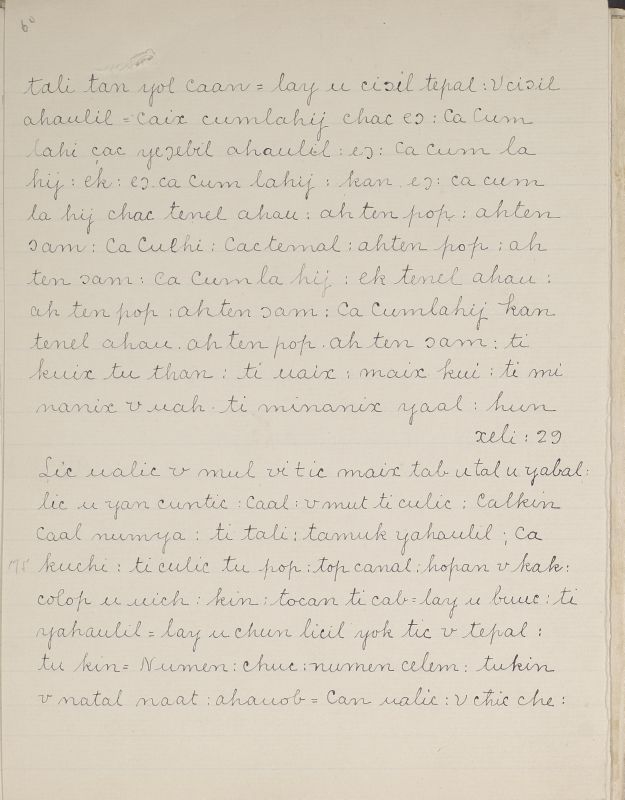 60
tali tan yol caan = lay u ciɔil tepal : Vciɔil
ahaulil = Caix cumlahij chac eɔ : Ca Cum
lahi çac yeɔebil ahaulil : eɔ : Ca cum la
hij : ek : eɔ . ca Cum lahij : kan eɔ : ca cum
la hij chac tenel ahau : ah ten pop : ahten
ɔam : Ca Culhi : Cactemal : ahten pop : ah
ten ɔam : Ca Cum la hij : ek tenel ahau :
ah ten pop : ahten ɔam : Ca Cumlahij kan
tenel ahau . ah ten pop . ah ten ɔam : ti
kuix tu than : ti uaix : maix kui : ti mi
nanix v uah . ti minanix yaal : hun
xeli : 29
Lic ualic v mul vi tic maix tab u tal u yabal :
lic u yan cuntic : Caal : v mut ti culic : Calkin
Caal numya : ti tali : tamuk yahaulil ; Ca
175 kuchi : ti culic tu pop : top canal : hopan v kak :
colop u uich : kin : tocan ti cab = lay u buuc : ti
yahaulil = lay u chun licil yok tic v tepal :
tu kin = Numen : chuc : numen celem : tu kin
v natal naat : ahauob = Can ualic : v chic che :